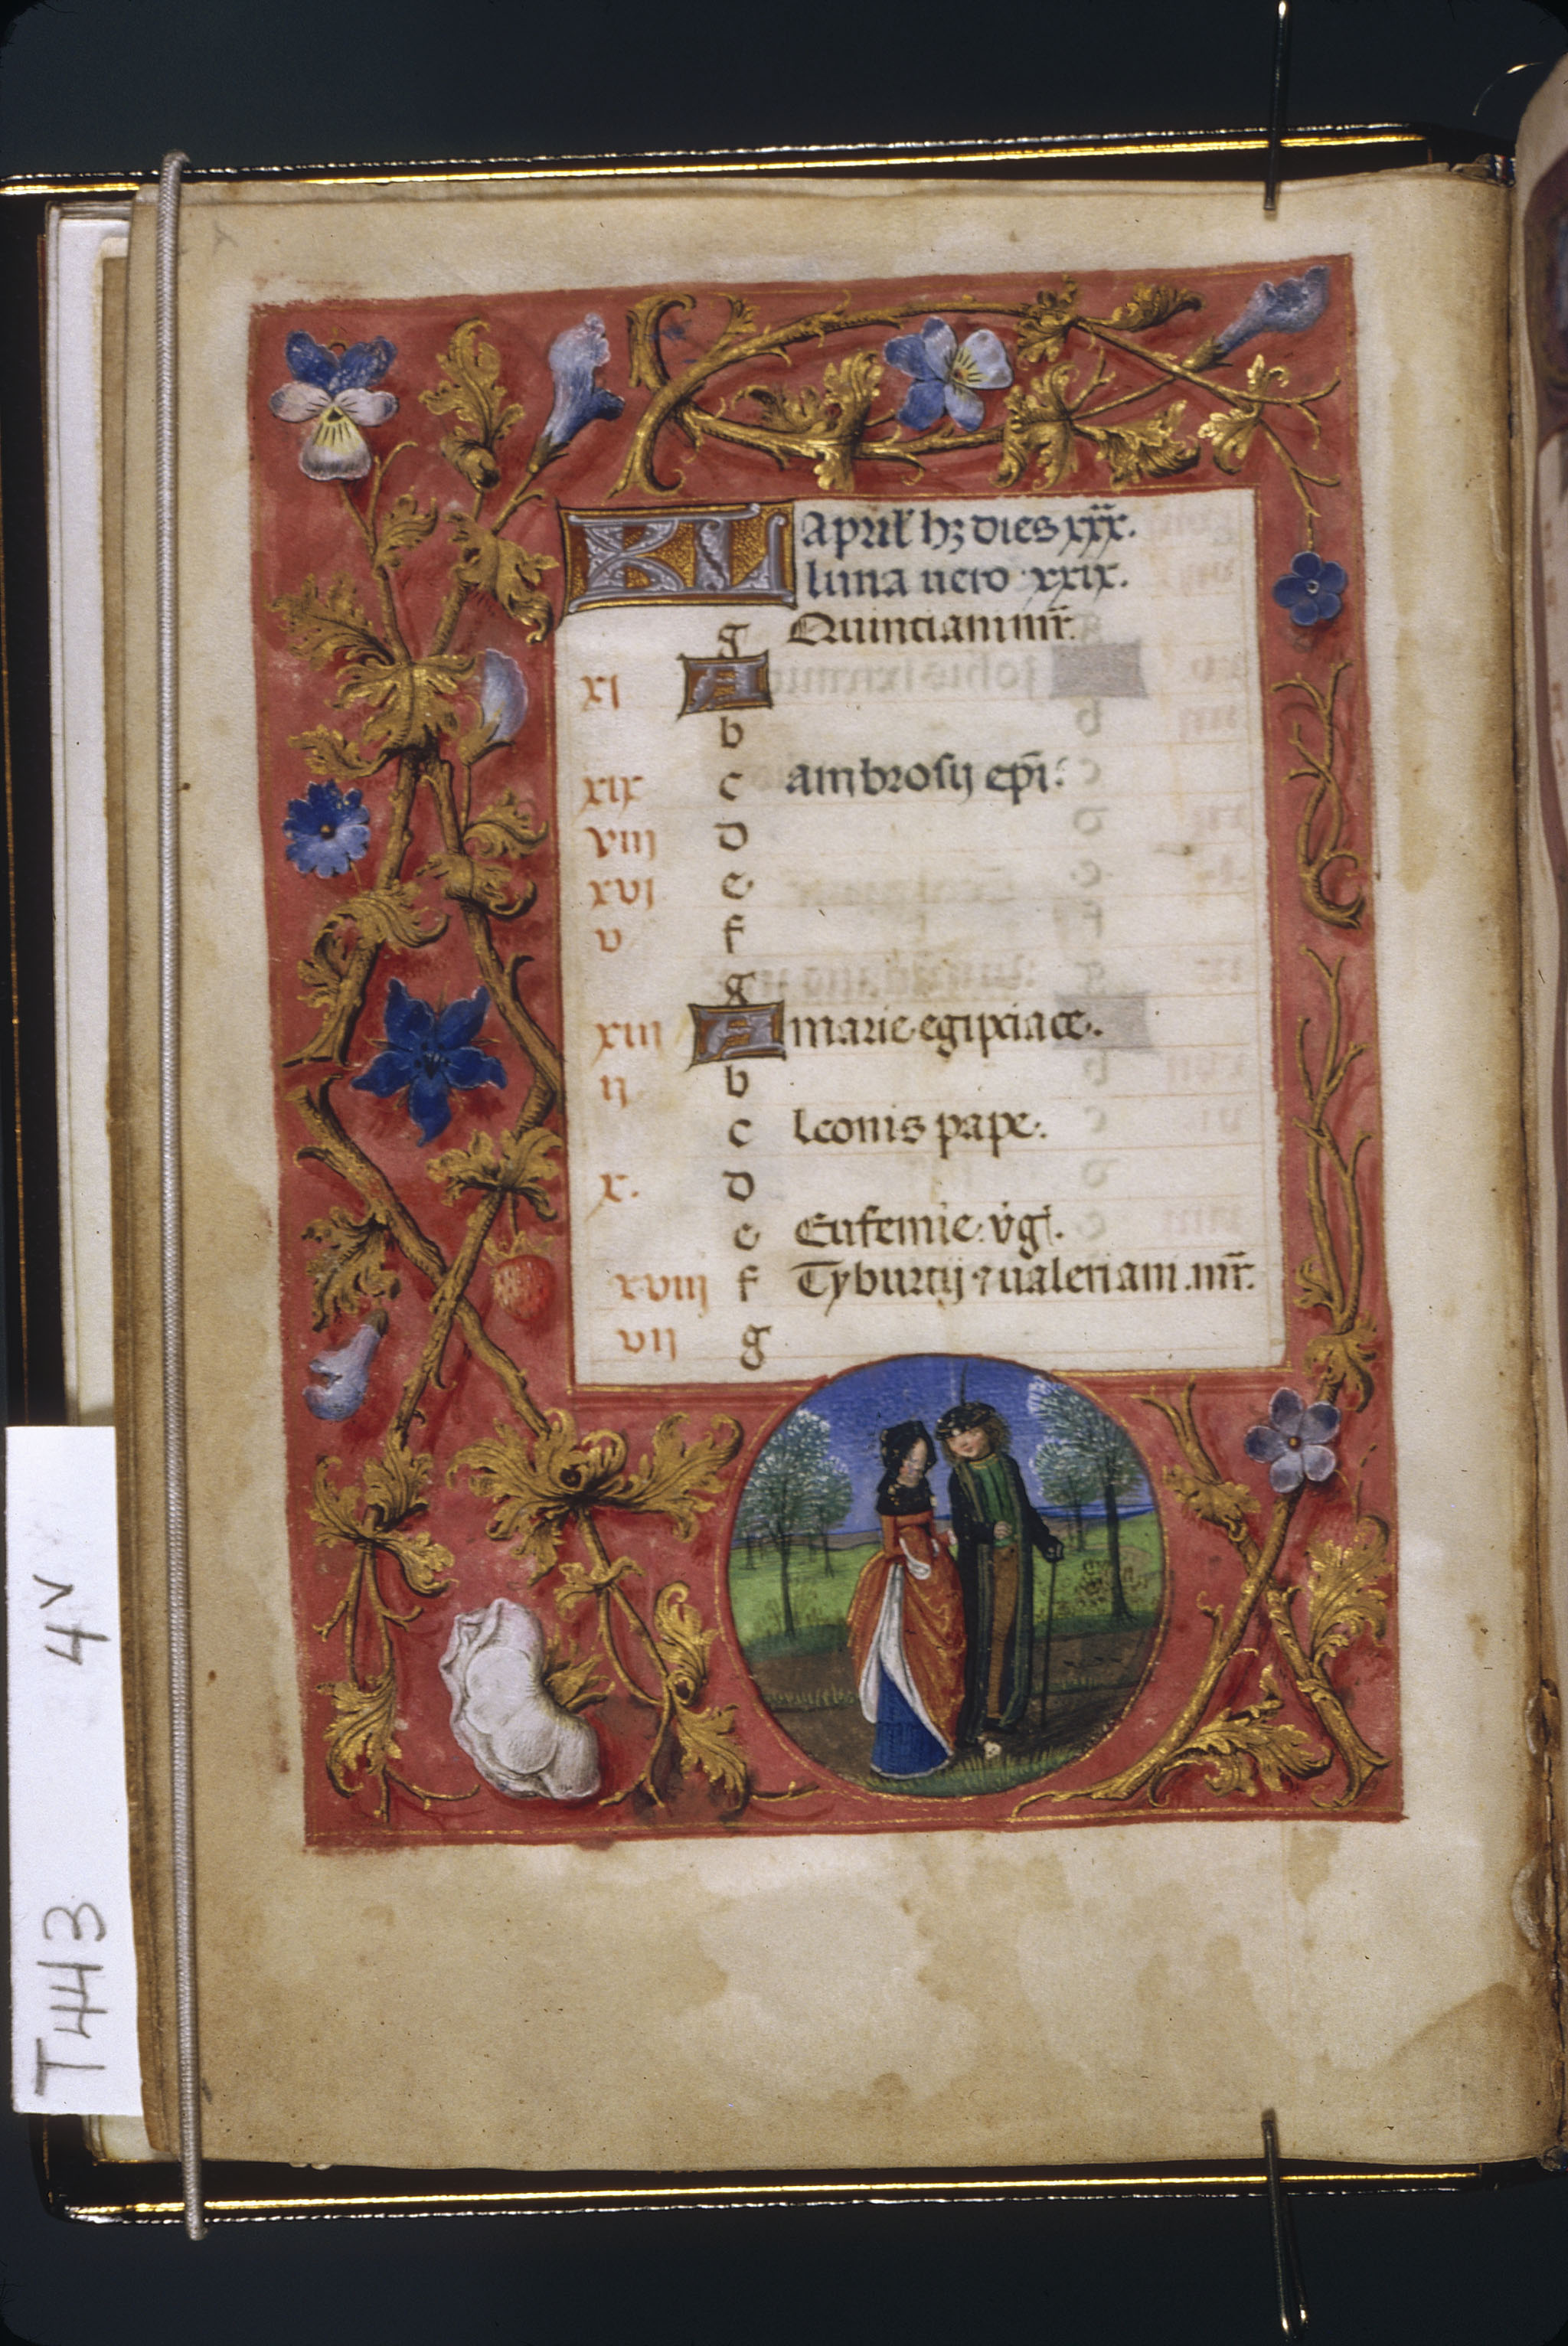 KL Aprił hʒ dies xxx.
luna uero xxix.
g Quinciani mr̄.
xi A
b
xix c ambrosij ep̄i:
viii d
xvi e
v f
g
xiii A marie egipciace.
ii b
c leonis pape.
x. d
e Eufemie. vḡ.
xviii f Tyburcij ⁊ ualeriani. mr̄.
vii g
T443 4v